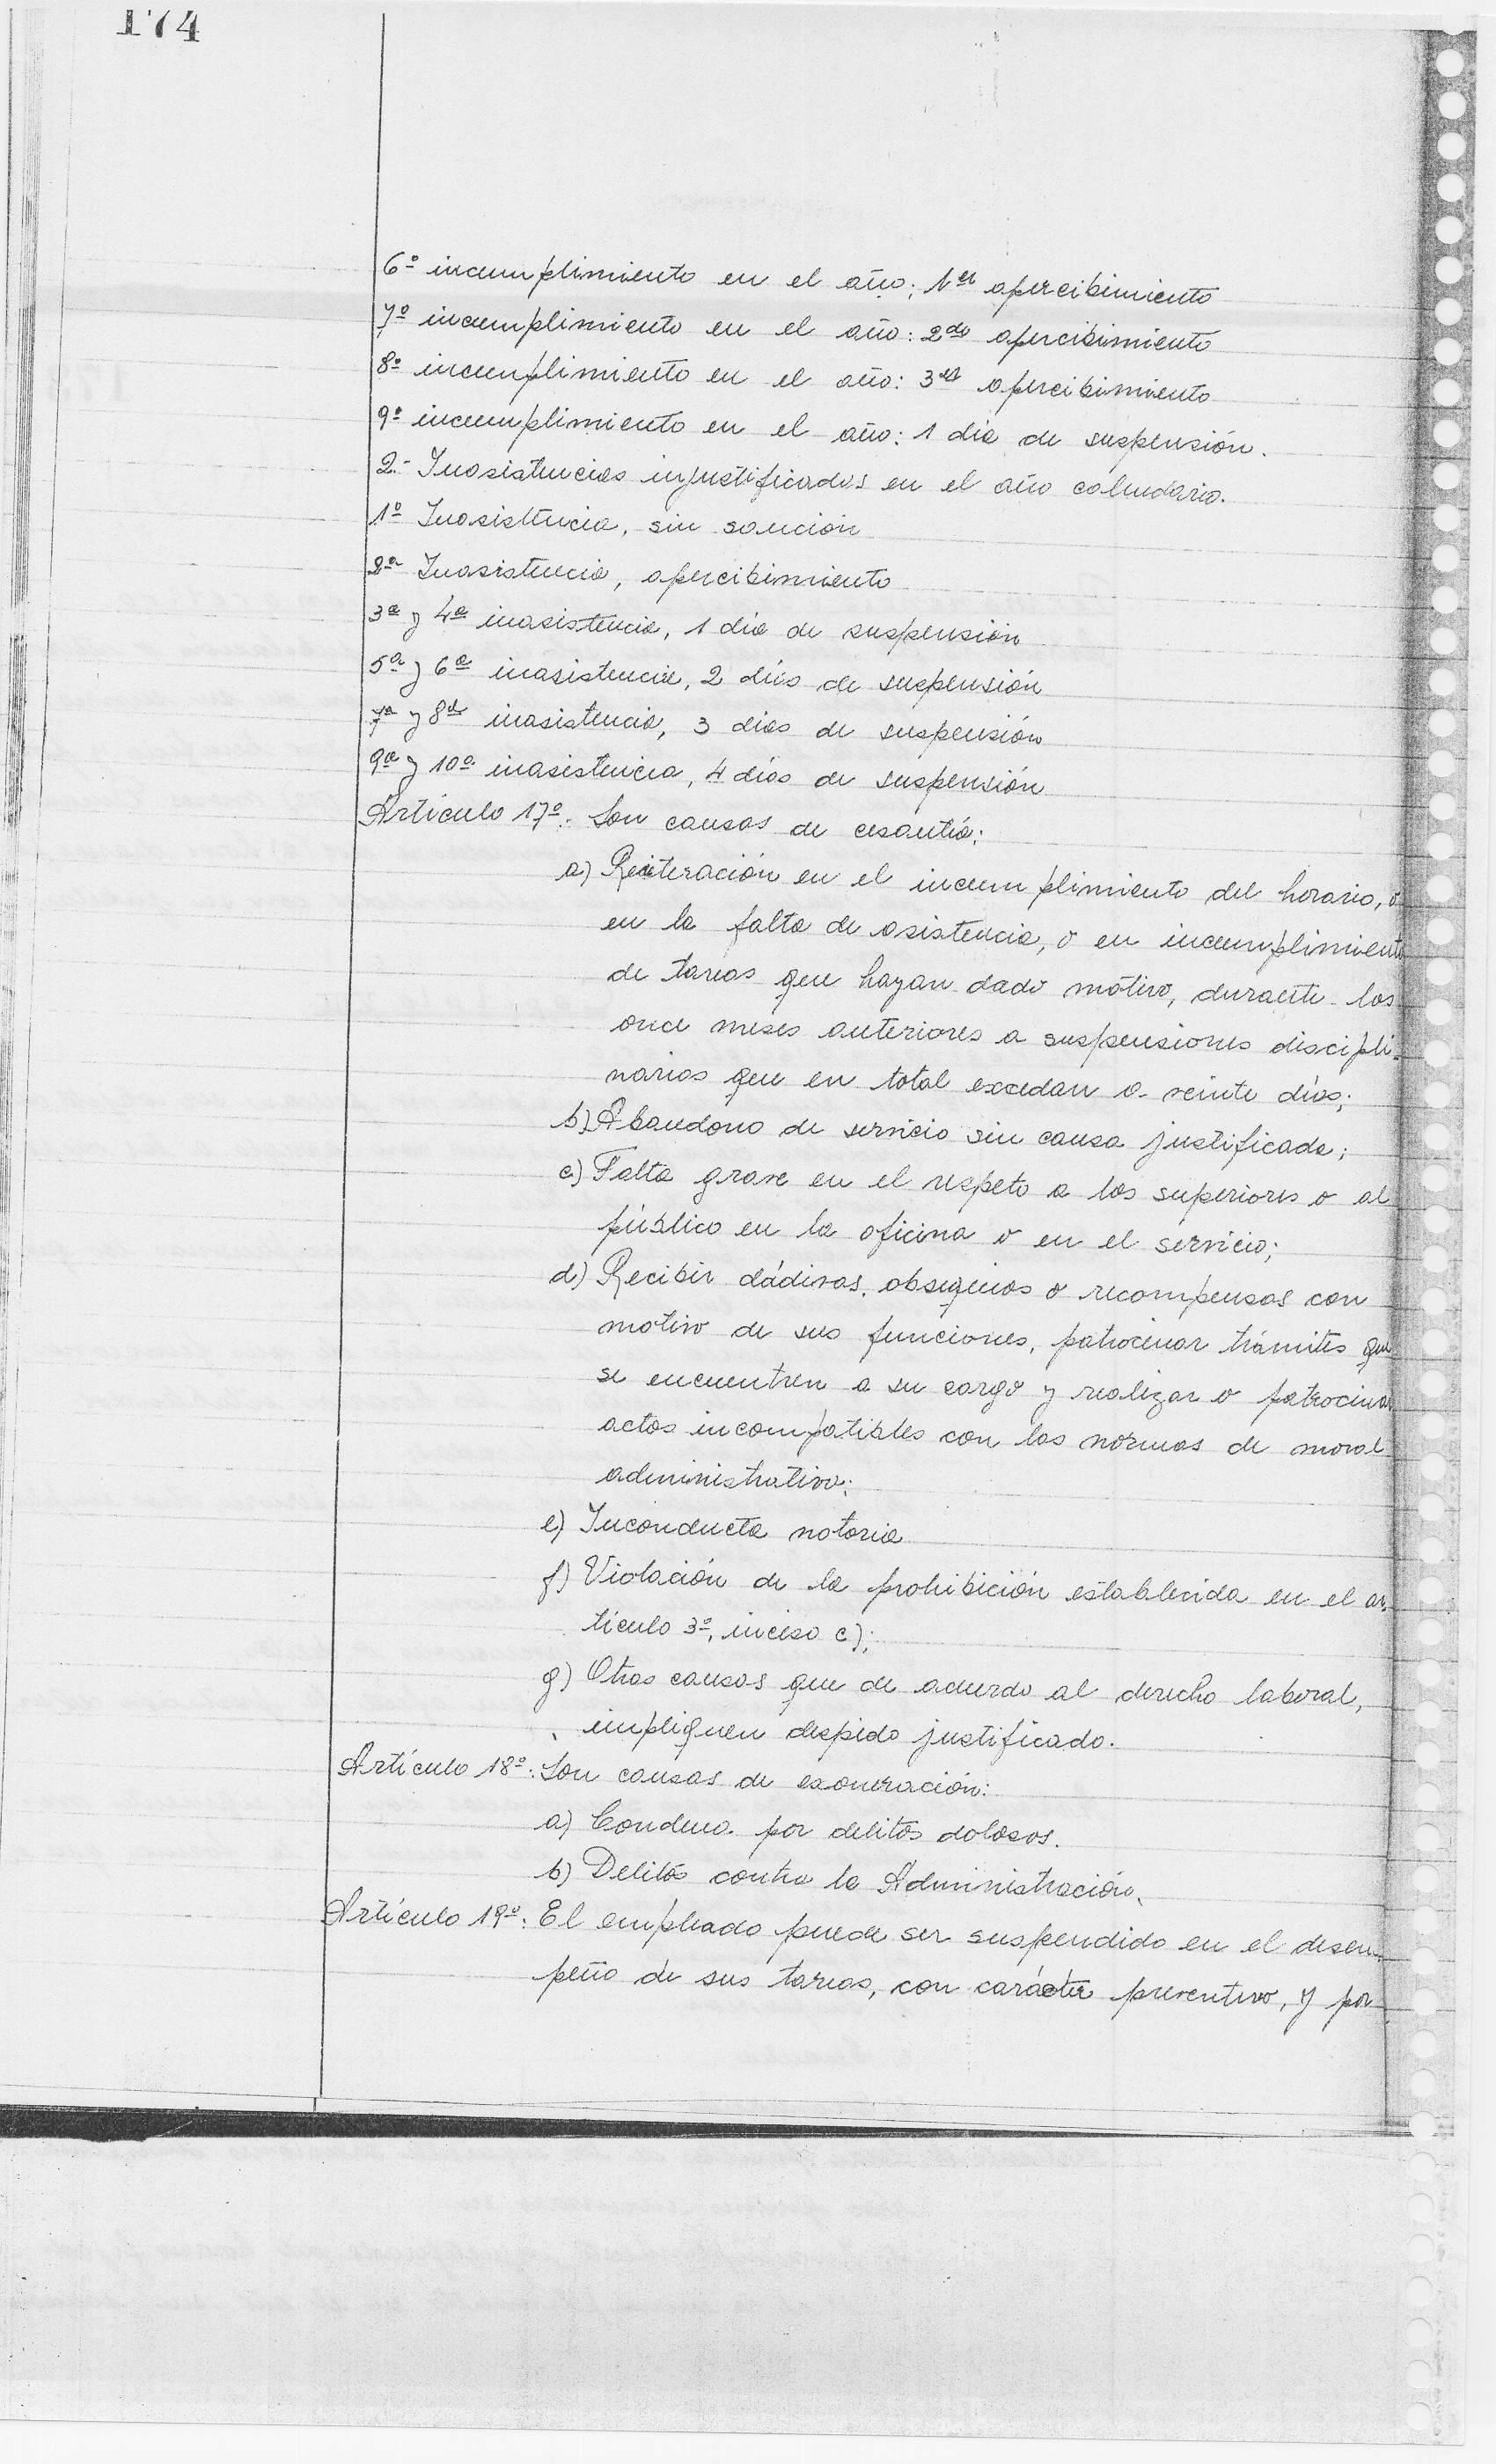 174
6º incumplimiento en el año; 1er apercibimiento
7º incumplimiento en el año: 2do apercibimiento
8º incumplimiento en el año: 3er apercibimiento
9º incumplimiento en el año: 1 día de suspensión.
2.- Inasistencias injustificadas en el año calendario.
1º Inasistencia, sin sanción
2ª Inasistencia, apercibimiento
3ª y 4ª inasistencia, 1 día de suspensión
5ª y 6ª inasistencia, 2 días de suspensión
7ª y 8ª inasistencia, 3 días de suspensión
9ª y 10ª inasistencia, 4 días de suspensión
Artículo 17º: Son causas de cesantía:
a) Reiteración en el incumplimiento del horario, o
en la falta de asistencia, o en incumplimiento
de tareas que hayan dado motivo, durante los
once meses anteriores a suspensiones discipli-
narias que en total excedan a veinte días;
b) Abandono de servicio sin causa justificada;
c) Falta grave en el respeto a los superiores o al
público en la oficina o en el servicio;
d) Recibir dádivas, obsequios o recompensas con
motivo de sus funciones, patrocinar trámites que
se encuentren a su cargo y realizar o patrocinar
actos incompatibles con las normas de moral
administrativa;
e) Inconducta notoria
f) Violación de la prohibición establecida en el ar-
tículo 3º, inciso c);
g) Otras causas que de acuerdo al derecho laboral,
impliquen despido justificado.
Artículo 18º: Son causas de exoneración:
a) Condena por delitos dolosos.
b) Delito contra la Administración.
Artículo 19º: El empleado puede ser suspendido en el desem-
peño de sus tareas, con carácter preventivo, y por